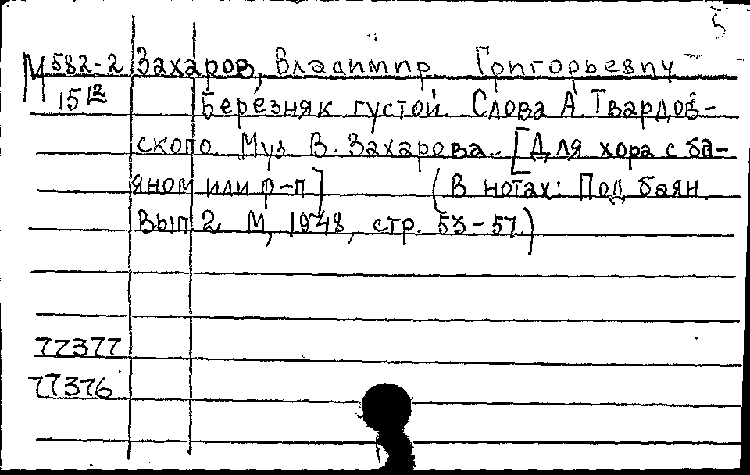 5
М 582-2 Захаров, Владимир Григорьевич
15 12 Березняк густой. Слова А. Твардов-
ского. Муз. В. Захарова. [Для хора с ба-
яном или ф-п] (В нотах: Под баян.
Вып 2. М, 1948, стр. 53-57.)
77377
77376